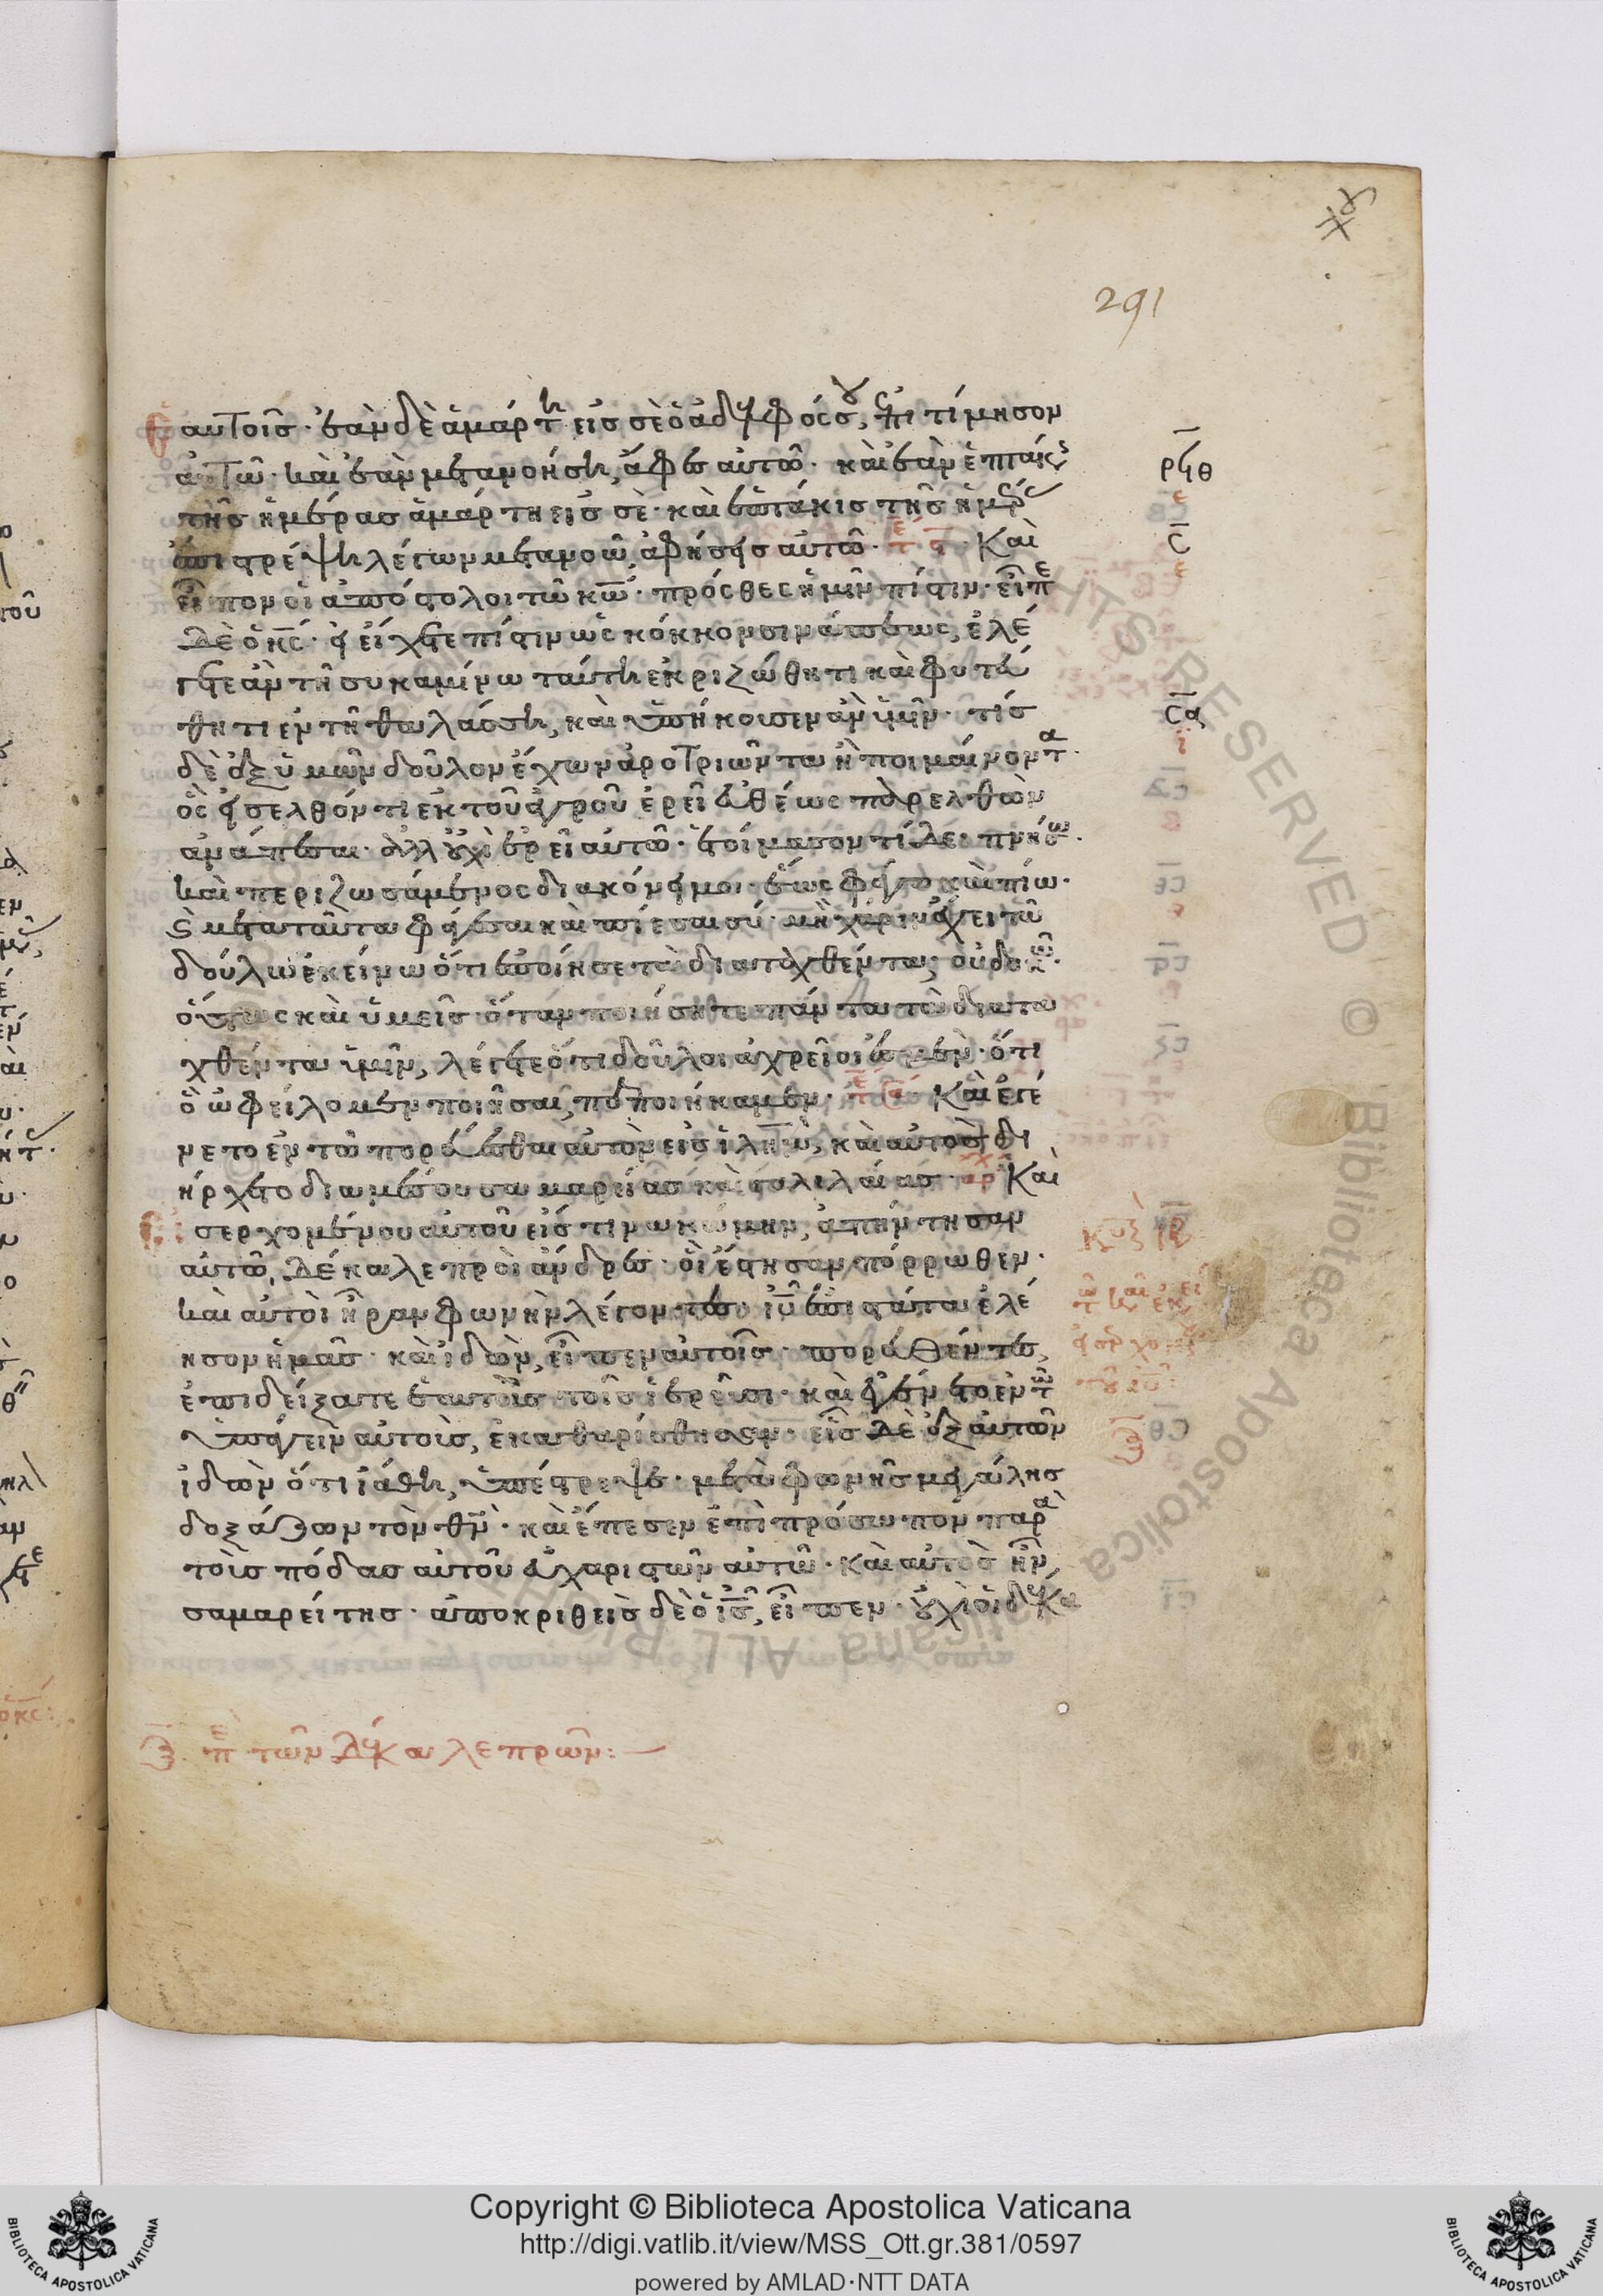 291
ἑαυτοῖς· ἐὰν δὲ ἁμάρτη εἰς σὲ ὁ ἀδελφός σου, ἐπιτίμησον
αὐτῶ· καὶ ἐὰν μετανοήση, ἄφες αὐτῶ· καὶ ἐὰν ἑπτάκις
ρϟθ
τῆς ἡμέρας ἁμάρτη εἰς σὲ· καὶ ἑπτάκις τῆς ἡμέρ
ἐπιστρέψη λέγων μετανοῶ, ἀφήσεις αὐτῶ· Καὶ
σ
εἶπον οἱ ἀπόστολοι τῶ κω· πρόσθες ἡμῖν πίστιν· εἶπε
δὲ ὁ κς· εἰ εἴχετε πίστιν ὡς κόκκον σινάπεως, ἐλέ
γετε ἂν τῆ συκαμίνω ταύτη ἐκριζώθητι καὶ φυτεύ
θητι ἐν τῆ θαλάσση, καὶ ὑπήκουσεν ἂν ὑμῖν· τίς
σα
δὲ ἐξ ὑμῶν δοῦλον ἔχων ἀροτριῶντα ἢ ποιμαίνοντα·
ὃς εἰσελθόντι ἐκ τοῦ ἀγροῦ ἐρεῖ εὐθέως παρελθὼν
ἀνάπεσαι· ἀλλ οὐχὶ ἐρεῖ αὐτῶ· ἑτοίμασον τί δειπνήσω·
καὶ περιζωσάμενος διακόνει μοι· ἕως φάγω καὶ πίω·
καὶ μετὰ ταῦτα φάγεσαι καὶ πίεσαι σύ· μὴ χάριν ἔχει τῶ
δούλω ἐκείνω ὅτι ἐποίησε τὰ διαταχθέντα; οὐ δοκῶ·
οὕτως καὶ ὑμεῖς ὅταν ποιήσητε πάντα τὰ διατα
χθέντα ὑμῖν, λέγετε ὅτι δοῦλοι ἀχρεῖοι ἐσμὲν· ὅτι
ὃ ὠφείλομεν ποιῆσαι, πεποιήκαμεν· Καὶ ἐγέ
νετο ἐν τῶ πορεύεσθαι αὐτὸν εἰς ἱλημ, καὶ αὐτὸς δι
ήρχετο διὰ μέσου σαμαρείας καὶ γαλιλαίας· Καὶ
εἰσερχομένου αὐτοῦ εἴς τινα κώμην, ἀπήντησαν
αὐτῶ, δέκα λεπροὶ ἄνδρες· οἳ ἔστησαν πόρρωθεν·
καὶ αὐτοὶ ἦραν φωνὴν λέγοντες· ιυ ἐπιστάτα ἐλέ
ησον ἡμᾶς· καὶ ἰδὼν, εἶπεν αὐτοῖς· πορευθέντες,
ἐπιδείξατε ἑαυτοὺς τοῖς ἱερεῦσι· καὶ ἐγένετο ἐν τῶ
ὑπάγειν αὐτοὺς, ἐκαθαρίσθησαν· εἷς δὲ ἐξ αὐτῶν
ἰδὼν ὅτι ἰάθη, ὑπέστρεψε· μετὰ φωνῆς μεγάλης
δοξάζων τὸν θν· καὶ ἔπεσεν ἐπὶ πρόσωπον παρὰ
τοὺς πόδας αὐτοῦ εὐχαριστῶν αὐτῶ· καὶ αὐτὸς ἦν
σαμαρείτης· ἀποκριθεὶς δὲ ὁ ις, εἶπεν· οὐχὶ οἱ δέκα
π τῶν δέκα λεπρῶν:—
Copyright © Biblioteca Apostolica Vaticana
http://digi.vatlib.it/view/MSS_Ott.gr.381/0597
powered by AMLAD·NTT DATA
BIBLIOTECA APOSTOLICA VATICANA
BIBLIOTECA APOSTOLICA VATICANA